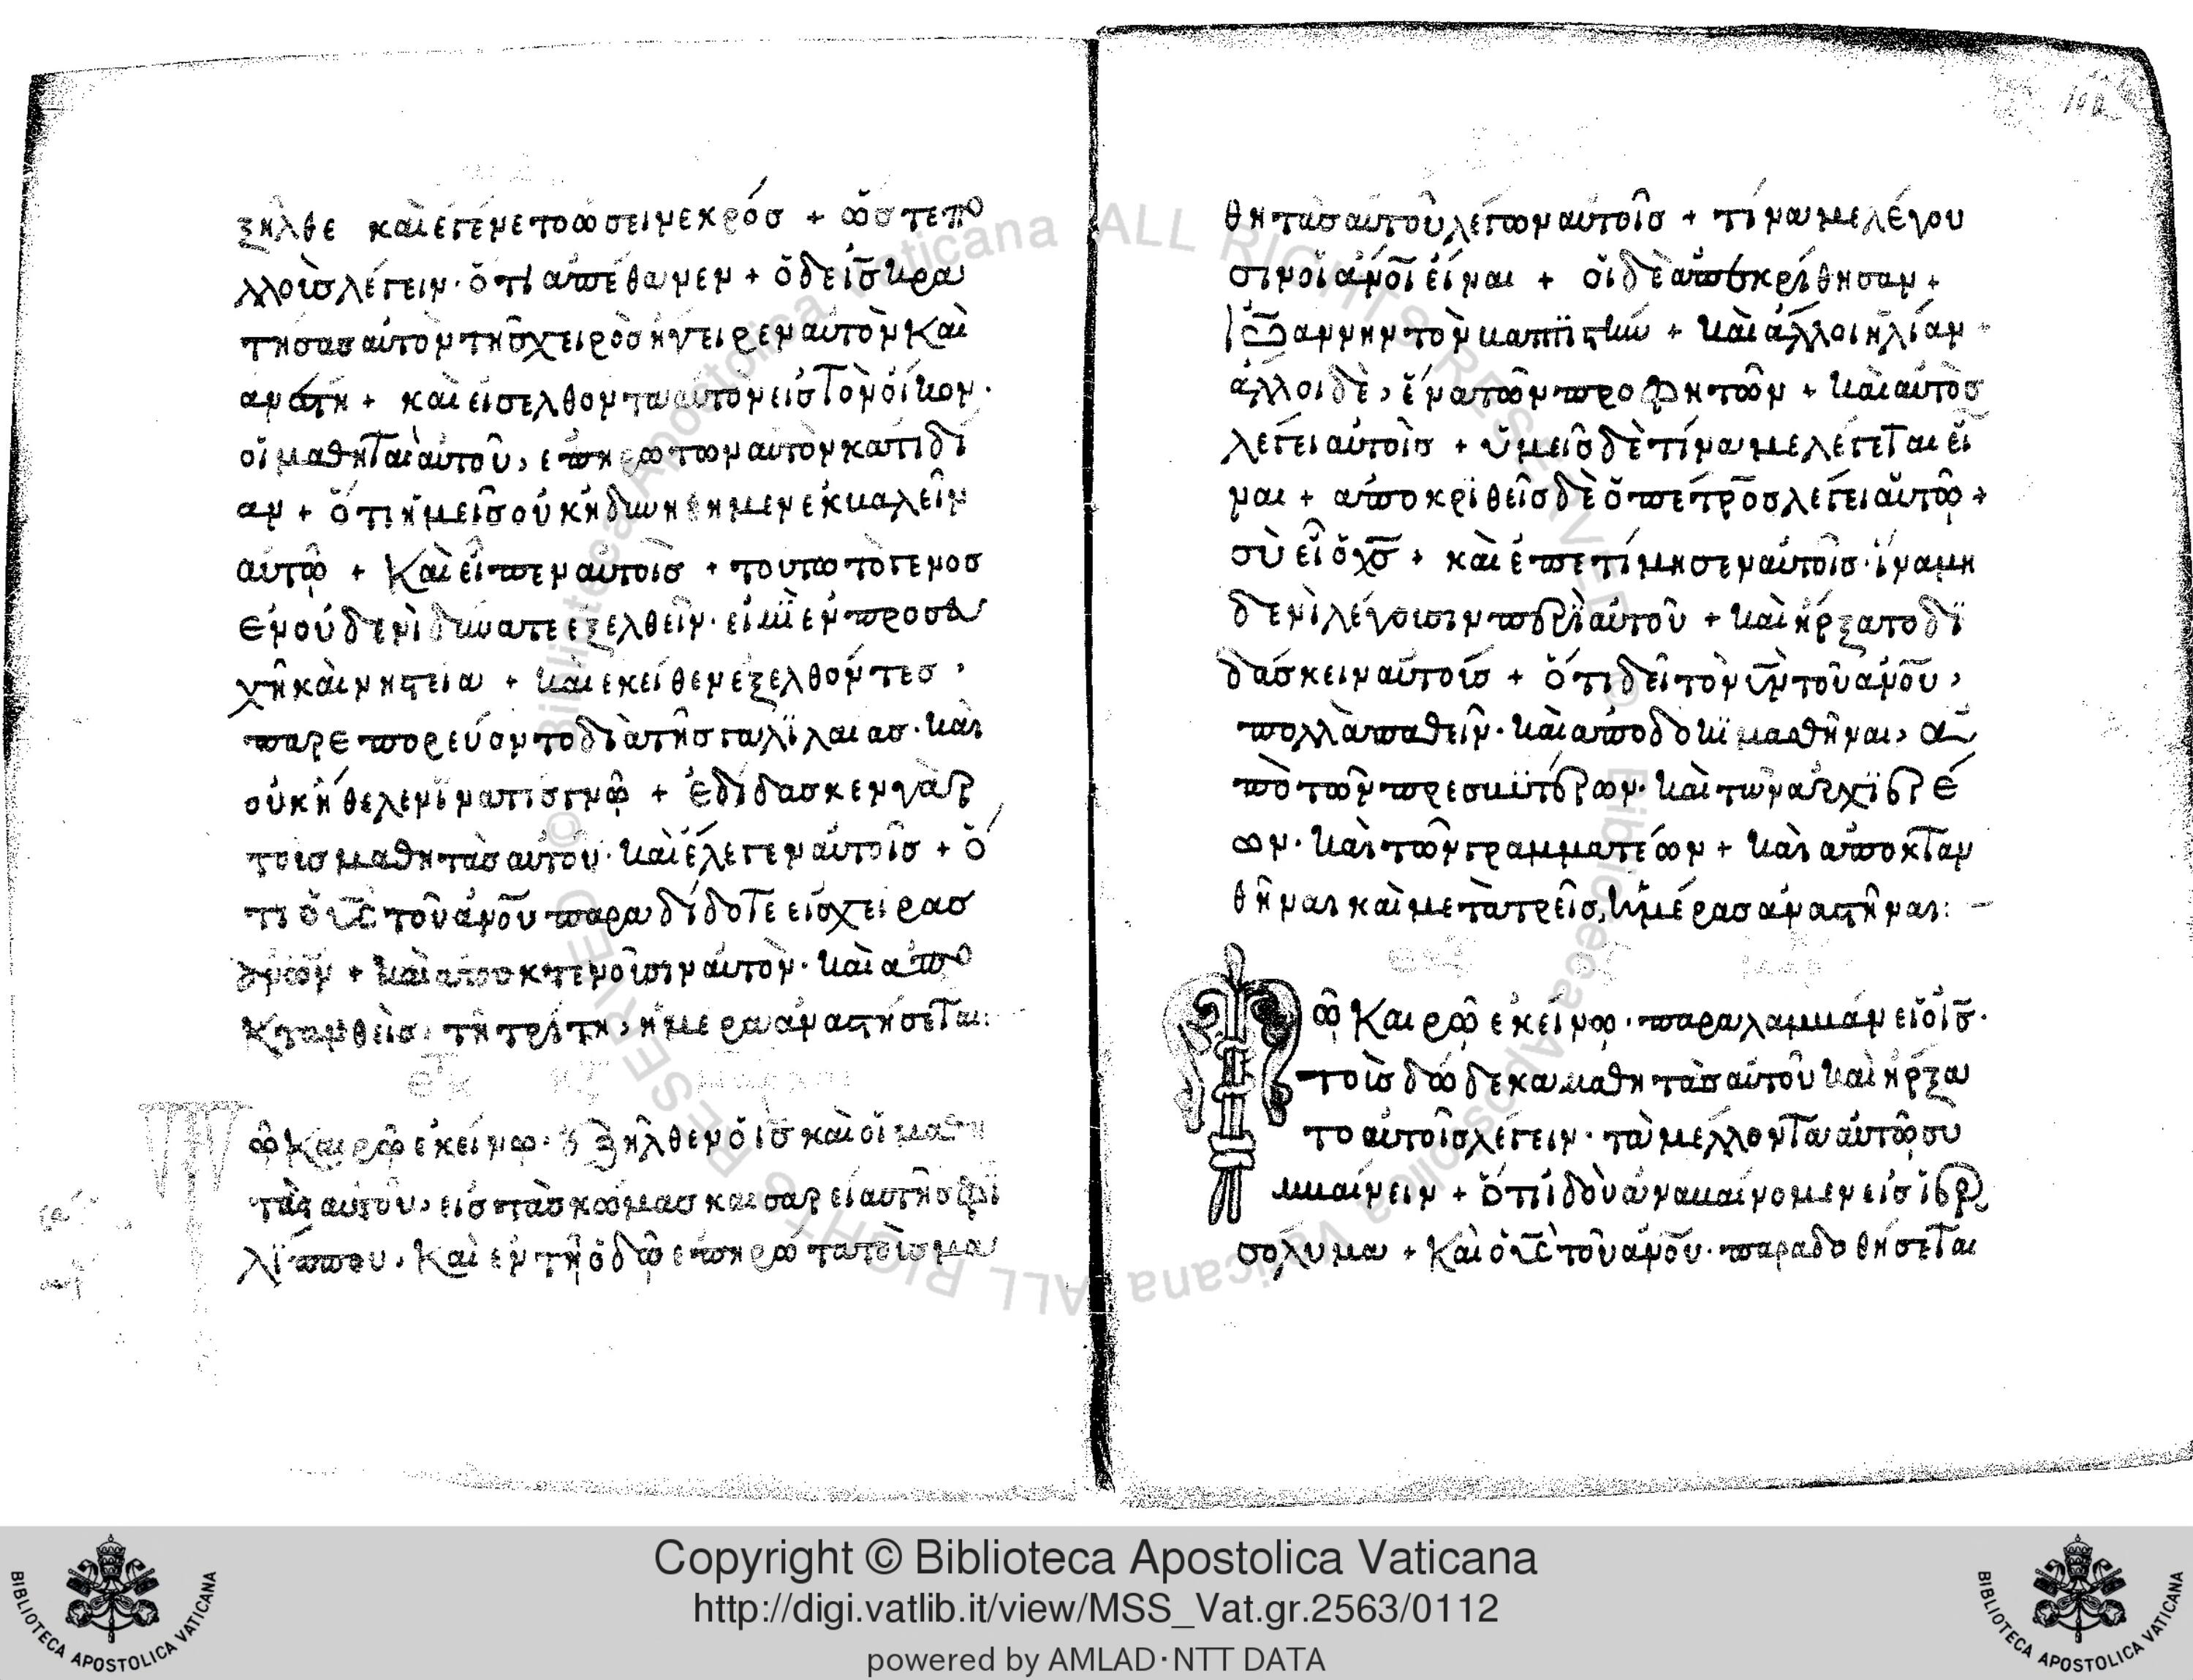 ξηλθε καὶ ἐγένετο ὡσεὶ νεκρόσ + ὥστε πο
λλοὶσ λέγειν· ὅτι ἀπέθανεν + ὁ δε ἰ̅σ̅ κρα
τήσασ αὐτὸν τῆσ χειρὸσ ἤγειρεν αὐτὸν καὶ
ανέστη + καὶ εἰσελθοντα αὐτὸν εἰσ τὸν οἶκον·
οἱ μαθηταὶ αὐτοῦ, ἐπηρώτων αὐτὸν κατιδί
αν + ὅτι ἡμεῖσ οὐκ ἠδυνήθημεν ἐκβαλεῖν
αὐτῶ + Καὶ εἶπεν αὐτοῖσ + τουτω τὸ γενοσ
ἐν οὐδενὶ δύναται ἐξελθεῖν· εἰ μὴ ἐν προσευ
χῆ καὶ νηστεία + καὶ ἐκείθεν ἐξελθόντεσ,
παρεπορεύοντο διὰ τῆσ γαλιλαιασ· καὶ
οὐκ ἤθελεν ἵνα τισ γνῶ + ἐδίδασκεν γὰρ
τοισ μαθητὰσ αὐτου· καὶ ἔλεγεν αὐτοῖσ + ὅ
τι ὁ υ̅σ̅ τοῦ ἀν̅ου̅ παραδίδοτε εἰσ χειρασ
αν̅ων̅ + καὶ αποκτενοῦσιν αὐτὸν· καὶ απο
κτανθεὶσ, τῆ τρίτη, ἡμερα ἀναστήσεται:
ῶ Καιρῶ ἐκείνω· ἐξῆλθεν ὁ ι̅σ̅ καὶ οἱ μαθη
τὰς αυτοῦ, εἰσ τὰσ κώμασ καισαρείασ τῆσ φι
λίππου, Καὶ ἐν τῆ ὁδῶ ἐπηρώτα τοὶσ μα
θητὰσ αὐτοῦ λέγων αὐτοῖσ + τίνα με λέγου
σιν οἱ ἀν̅οι̅ εἶναι + οἱ δὲ ἀπεκρίθησαν +
Ἰωάννην τὸν βαπτιστὴν + καὶ ἄλλοι ἠλίαν·
ἄλλοι δὲ, ἕνα τῶν προφητῶν + καὶ αὐτὸσ
λέγει αὐτοῖσ + ὑμεῖσ δὲ τίνα με λέγεται εἶ
ναι + ἀποκριθεῖσ δὲ ὁ πέτροσ λέγει αὐτῶ +
σὺ εἶ ὁ χ̅σ̅ + καὶ ἐπετίμησεν αὐτοῖσ· ἵνα μη
δενὶ λέγουσιν περὶ αὐτοῦ + καὶ ἤρξατο δι
δάσκειν αὐτοίσ + ὅτι δεῖ τὸν υ̅ν̅ τοῦ ἀν̅ου̅,
πολλὰ παθεῖν· καὶ ἀποδοκιμασθῆναι, ἀ
πὸ τῶν πρεσβυτέρων· καὶ των ἀρχιερέ
ων· καὶ τῶν γραμματέων + καὶ αποκταν
θῆναι καὶ μετὰ τρεῖσ, ἡμέρασ ἀναστῆναι:
ῶ Καιρῶ ἐκείνω· παραλαμβάνει ὁ ἰ̅σ̅·
τοὶσ δώδεκα μαθητὰσ αὐτοῦ καὶ ἤρξα
το αὐτοῖσ λέγειν· τὰ μέλλοντα αὐτῶ συ
μβαίνειν + ὅτι ἰδοὺ ἀναβαίνομεν εἰσ ἱερ
οσόλυμα + Καὶ ὁ υ̅σ̅ τοῦ ἀν̅ου̅· παραδοθήσεται
Copyright © Biblioteca Apostolica Vaticana
http://digi.vatlib.it/view/MSS_Vat.gr.2563/0112
powered by AMLAD·NTT DATA
BIBLIOTECA APOSTOLICA VATICANA
BIBLIOTECA APOSTOLICA VATICANA